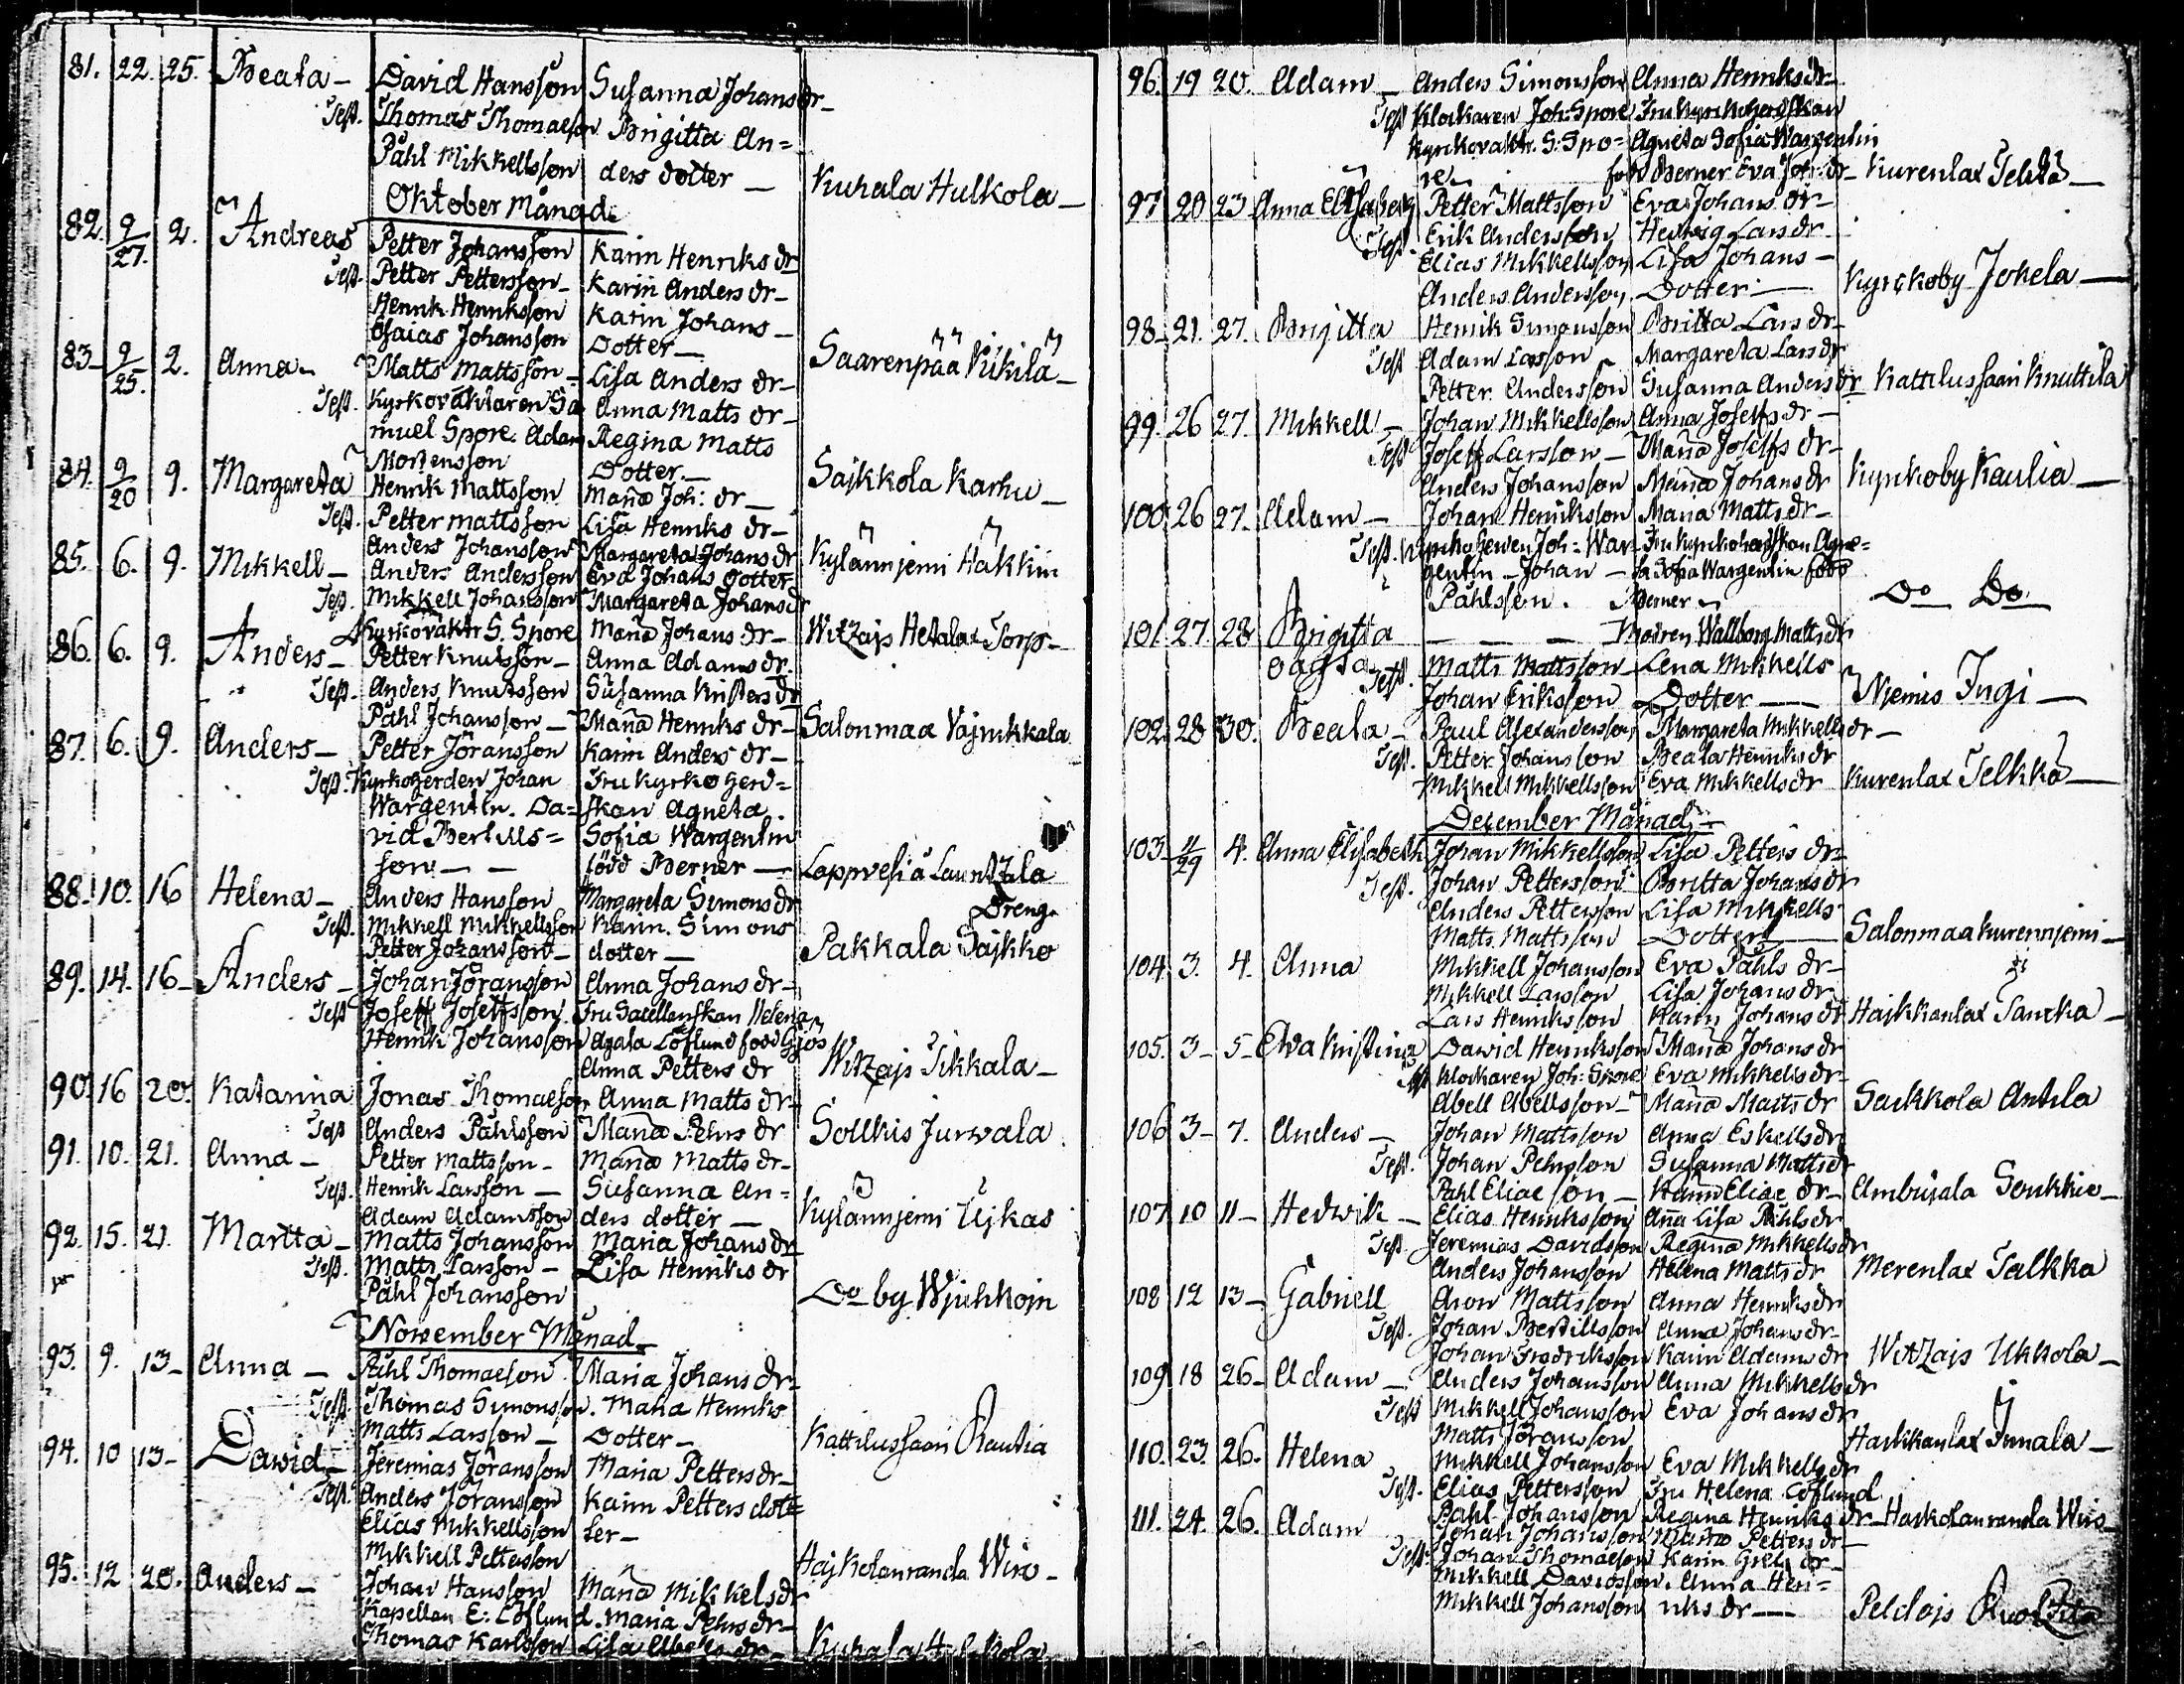 81. 22. 25. Beata - David Hansson Susanna Johans dr -
Test. Thomas Thomaeson Brigitta An=
Påhl Mikkellsson ders dotter -
Kuhala Hulkola -
Oktober Månad.
82. 9/27. 2. Andreas Petter Johansson Karin Henriks dr
Test. Petter Pettersson - Karin Anders dr -
Henrik Henriksson Karin Johans -
Esaias Johansson Dotter -
Saarenpää Kikilä -
83 - 9/25. 2. Anna - Matts Mattsson - Lisa Anders dr -
Test. Kyrkovaktaren Sa Anna Matts dr -
muel Spore. Adam Regina Matts
Mortensson Dotter. -
Sajkkola Karhu -
84. 9/20 9. Margareta Henrik Mattsson Maria Joh: dr -
Test. Petter Mattsson Lisa Henriks dr -
Anders Johansson Margareta Johans dr
Kylännjemi Häkkin
85. 6. 9. Mikkell - Anders Andersson Eva Johans dotter
Test. Mikkell Johansson Margareta Johans dr
Kyrkovaktr S. Spore Maria Johans dr -
Witzajs Hetala Torp -
86. 6. 9. Anders - Petter Knutsson - Anna Adams dr
Test. Anders Knutsson Susanna Kristers dr
Påhl Johansson - Maria Henriks dr -
Salonmaa Vajnikkala
87. 6. 9. Anders - Petter Jöransson Karin Anders dr -
Test. Kyrkoherden Johan Fru Kyrkoherd=
Wargentin. Da= skan Agneta.
vid Bertills= Sofia Wargentin
son - - född Berner -
Lappvesi å Lauritzala
Dreng.
88. 10. 16 Helena - Anders Hansson Margareta Simons dr
Test. Mikkell Mikkellsson Karin. Simons
Petter Johansson - dotter -
Pakkala Sajkko
89. 14. 16 - Anders - Johan Jöransson Anna Johans dr -
Test Joseff Joseffsson. Fru Sacellanskan Helena
Henrik Johansson Agata Löflund född Gjös
Anna Petters dr
Witzajs Tikkala -
90. 16 20. Katarina Jonas Thomaeson Anna Matts dr -
Test Anders Påhlsson Maria Pehrs dr
Sollkis Jurvala.
91. 10. 21. Anna - Petter Mattsson - Maria Matts dr -
Test. Henrik Larsson - Susanna An=
Adam Adamsson ders dotter -
Kylännjemi Ujkas
92. 15. 21. Martta - Matts Johansson Maria Johans dr
Test. Matts Larsson - Lisa Henriks dr
Påhl Johansson
Do by Wjuhkoin
November Månad.
93. 9. 13 - Anna - Påhl Thomaeson Maria Johans dr -
Test. Thomas Simonsson. Maria Henriks
Matts Larsson - Dotter -
Kattilussaari Rautia
94. 10 13 - Dawid - Jeremias Jöransson Maria Petters dr -
Test. Anders Jöransson Karin Petters dot=
Elias Mikkellsson ter -
Mikkell Pettersson
Hajkolanranda Wiro -
95. 12 20. Anders - Johan Hansson Maria Mikkels dr
Kapellan E: Löflund. Maria Pehrs dr -
Thomas Karlsson Lisa Abels dr -
Kuhala Hulkkola
96. 19 20. Adam - Anders Simonsson Anna Henriks dr -
Test Klockaren Joh: Spore Fru Kyrkoherdskan
Kyrkovaktr. S: Spo= Agneta Sofia Wargentin
re - född Berner Eva Joh: dr -
Kurenlax Telkkä -
97. 20 23 Anna Elisabeth Petter Mattsson Eva Johans dr -
Test. Erik Andersson Hedwig Lars dr -
Elias Mikkellsson Lisa Johans -
Anders. Andersson Dotter -
Kyrckoby Jokela -
98. 21. 27. Brigitta Henrik Simonsson Britta Lars dr -
Test Adam Larsson - Margareta Lars dr
Petter Andersson Susanna Anders dr
Kattilussaari Knuttila
99. 26 27. Mikkell - Johan Mikkellsson Anna Joseffs dr -
Test Joseff Larsson - Maria Joseffs dr -
Anders Johansson Maria Johans dr
Kyrkoby Kaulia -
100. 26 27. Adam - Johan Henriksson Maria Matts dr -
Test. Kyrkoherden Joh: War Fru Kyrkoherdskan Agne=
gentin - Johan - ta Sofia Wargentin född
Påhlsson. Berner -
Do Do
101. 27. 28 Brigitta - - - Modren Wallborg Matts dr
oägta
Test. Matts Mattsson - Lena Mikkells
Johan Eriksson Dotter -
Njemis Jngi -
102. 28 30. Beata - Paul Alexandersson Margareta Mikkells dr -
Test. Petter Johansson Beata Henriks dr
Mikkell Mikkellsson Eva Mikkells dr
Kurenlax Telkkä -
December Månad. -
103. 11/29 4. Anna Elisabeth Johan Mikkellsson Lisa Petters dr -
Test. Johan Pettersson Britta Johans dr
Anders Pettersson Lisa Mikkells
Matts. Mattsson Dotter -
Salonmaa Kurennjemi -
104. 3. 4. Anna Mikkell Johansson Eva Påhls dr -
Mikkell Larsson Lisa Johans dr
Lars Henriksson Karin Johans dr
Hajkkanlax Tancka -
105. 3 - 5 - Elsa Kristina Dawid Henriksson Maria Johans dr
Test Klockaren Joh: Spore Eva Mikkells dr -
Abell Abellsson - Maria Matts dr
Sackkola Anttila
106 3 - 7. Anders - Johan Mattsson Anna Eskells dr
Test. Johan Pehrsson Susanna Matts dr
Påhl Eliaeson - Karin Eliae dr -
Ambusala Soukkio -
107 10 11 - Hedwik - Elias Henriksson Anna Lisa Påhls dr
Test. Jeremias Davidsson Regina Mikkells dr
Anders Johansson Helena Matts dr
Merenlax Talkka
108 12 13 - Gabriell Aron Mattsson Anna Henriks dr
Test. Johan Bertillsson Anna Johans dr -
Johan Fredriksson Karin Adams dr
Witzajs Ukkola -
109 18 26 - Adam - Anders Johansson Anna Mikkells dr
Test Mikkell Johansson Eva Johans dr
Matts Jöransson
Hajkkanlax Junala -
110. 23. 26. Helena Mikkell Johansson Eva Mikkells dr
Test. Elias Pettersson Fru Helena Löflund
Påhl Johansson Regina Henriks dr -
Hajkolanranda Wiro
111. 24. 26. Adam Johan Johansson Maria Petters dr -
Test. Johan Thomaeson Karin Grels dr -
Mikkell Davidsson. Anna Hen=
Mikkell Johansson riks dr -
Peldojs